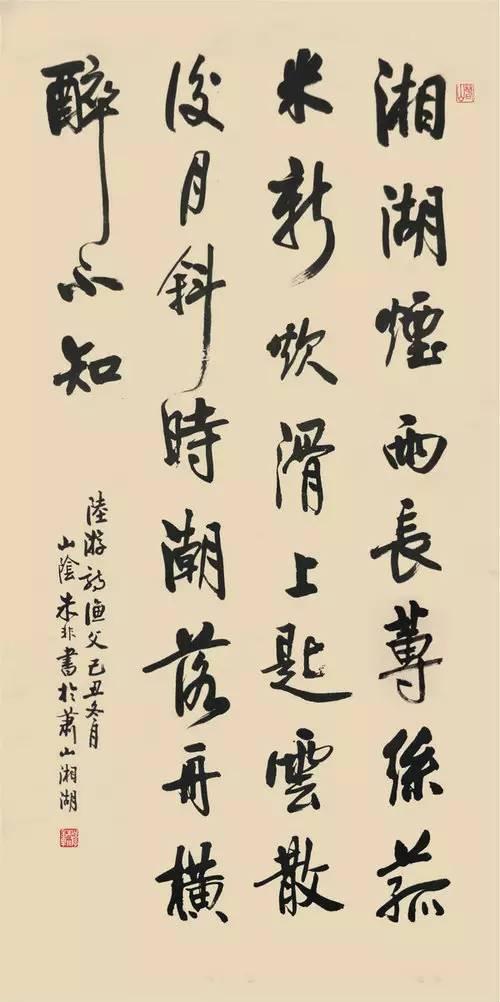 湘湖煙雨長蓴絲菰
米新炊滑上匙雲散
後月斜時潮落舟橫
醉不知
陸游詩漁父己丑冬月
山陰朱非書於蕭山湘湖